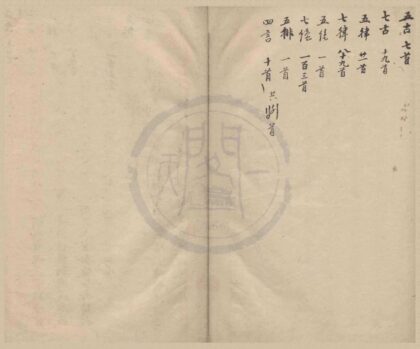 五古 七首
七古 十九首
五律 首
七律 八十九首
五絕 一首
七絕 一百三首
五排 一首
四言 十首 共 首